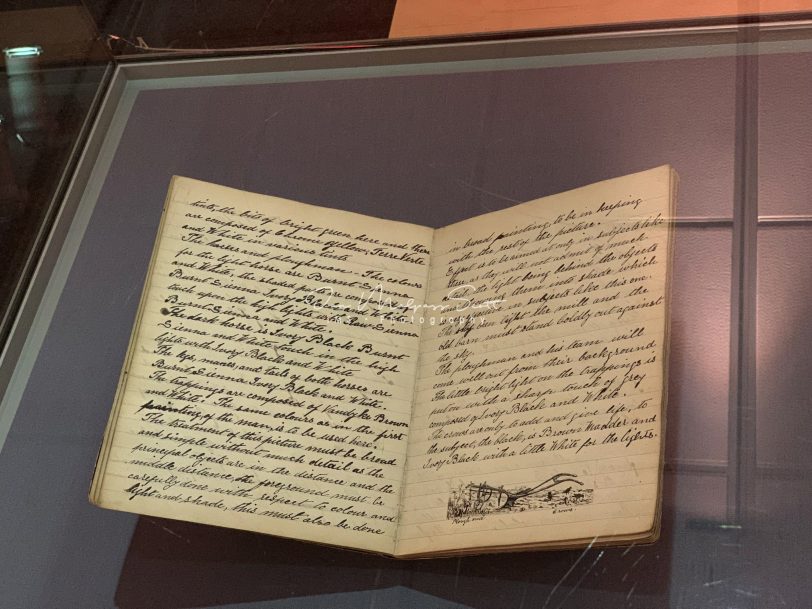 tints, the bits of bright green here and there
are composed of Chrome Yellow, Terre Verte
and White in various tints
The horses and ploughman - The colours
for the light horse are Burnt Sienna
and White, the shaded parts are composed of
Burnt Sienna Ivory Black and White
touch upon the high lights with Raw Sienna
Burnt Sienna and White.
The dark horse is Ivory Black Burnt
Sienna and White touch in the high
lights with Ivory Black and White
The legs, manes, and tails of both horses are
Burnt Sienna Ivory Black and White.
The trappings are composed of Vandyke Brown
and White. The same colours as in the first
painting of the man, is to be used here.
The treatment of this picture must be broad
and simple without much detail as the
principal objects are in the distance and the
middle distance, the foreground must be
carefully done with respect to colour and
light and shade, this must also be done
in broad painting, to be in keeping
with the rest of the picture.
Effect is to be aimed it only in subjects like
these as they will not admit of much
the light being behind the objects
them into shade which
is effective in subjects like this one.
The sky is light the mill and the
old barn must stand boldly out against
the sky.
The ploughman and his team will
come well out from their background
The little bright light on the trappings is
put on with a sharp touch of grey
composed of Ivory Black and White.
The crows are only to add and give life, to
the subject, the black, is Brown Madder and
Ivory Black with a little White for the lights.
Plough and
Crows
Photography